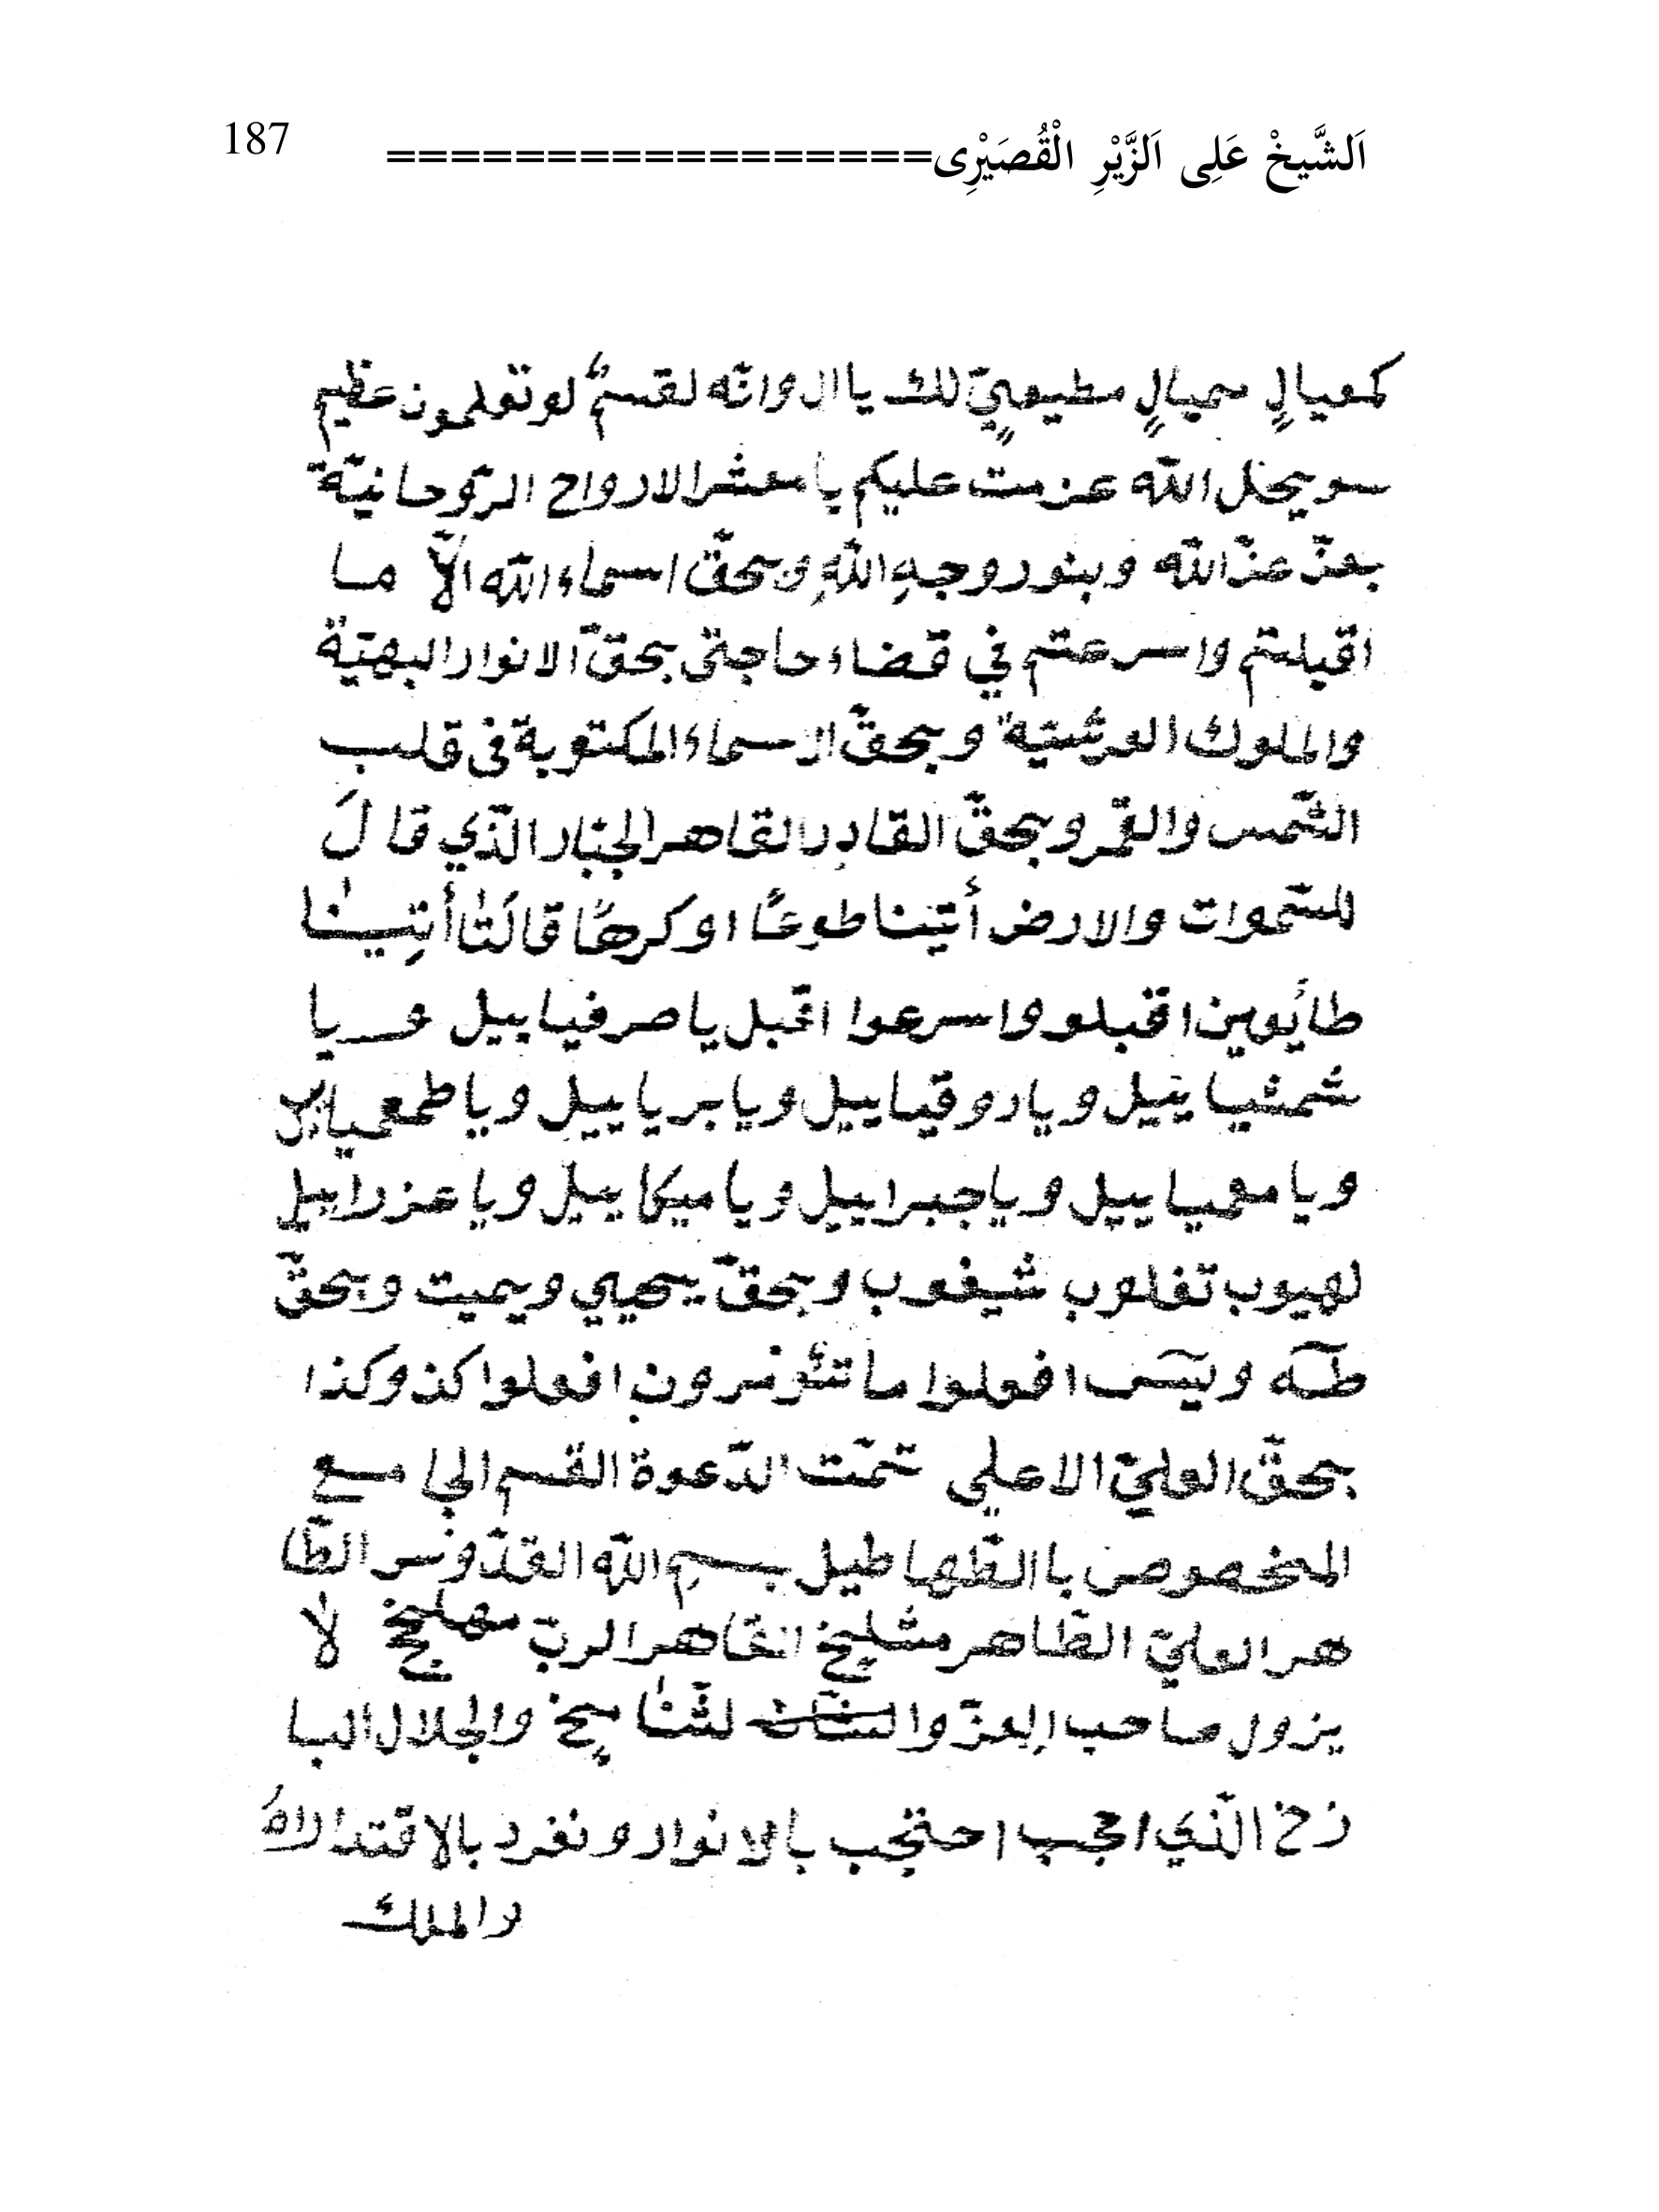 187 =================اَلشَّيخْ عَلِى اَلزَّيْرِ الْقُصَيْرِى
كمعيالٍ سميالٍ مطيعيٍّ لك يا ال وانّه لقسمٌ لو تعلمون عظيم
سويجل اللّه عزمت عليكم يا معشر الارواح الرّوحانيّة
بعزّ عزّ اللّه وبنور وجهِ اللّهِ وبحقّ اسماء اللّه الاّ ما
اقبلتم واسرعتم في قضاء حاجتى بحقّ الانوار البهيّة
والملوك العرشيّة وبحقّ الاسماء المكتوبة فى قلب
الشّمس والقمر وبحقّ القادِر القاهر الجبّار الّذي قالَ
للسّموات والارض أتينا طوعًا او كرهًا قالَتا أتِينا
طائعين اقبلو واسرعوا اقبل يا صرفياييل ويا
شمشياييل ويا روقياييل ويا برياييل ويا طمعياييل
ويا معمياييل ويا جبراييل ويا ميكاييل ويا عزراييل
لهيوب تفلوب شيغوب وبحقّ يحيي ويميت وبحقّ
طٓه ويٓس افعلوا ما تئومرون افعلوا كذ وكذا
بحقّ العليّ الاعلي تمّت الدّعوة القسم الجامع
المخصوص باالطّهاطيل بسمِ اللّه القدّوس الطّا
هر العليّ الظّاهر مشليخ القاهر الربّ مهليخ لا
يزول صاحب العزّ و لشّنا ميخ والجلال البا
زخ الّذي احتجب بالانوار ونفرد بالاقتدار
والملك